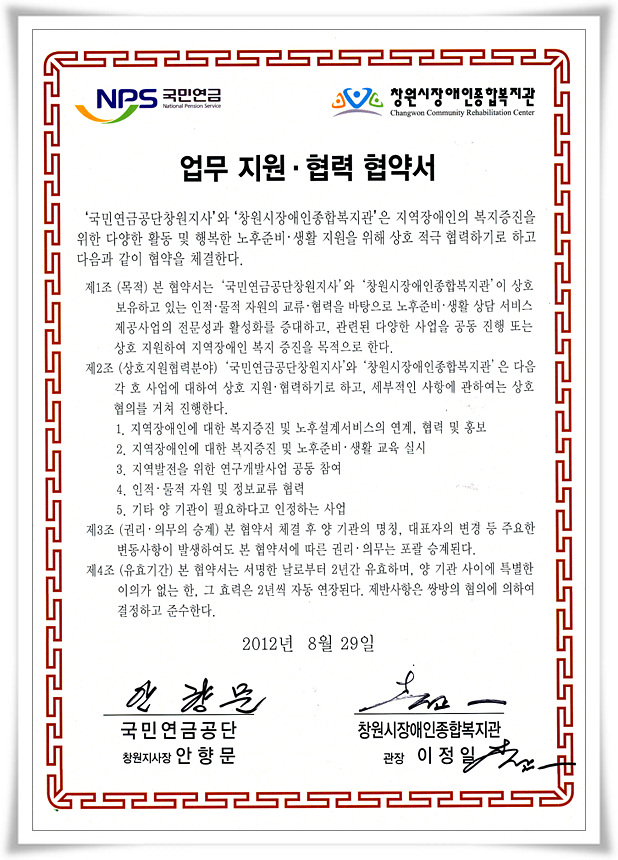 NPS 국민연금
National Pension Service
창원시장애인종합복지관
Changwon Community Rehabilitation Center
업무 지원·협력 협약서
'국민연금공단창원지사'와 '창원시장애인종합복지관'은 지역장애인의 복지증진을
위한 다양한 활동 및 행복한 노후준비·생활 지원을 위해 상호 적극 협력하기로 하고
다음과 같이 협약을 체결한다.
제1조 (목적) 본 협약서는 '국민연금공단창원지사'와 '창원시장애인종합복지관'이 상호
보유하고 있는 인적·물적 자원의 교류·협력을 바탕으로 노후준비·생활 상담 서비스
제공사업의 전문성과 활성화를 증대하고, 관련된 다양한 사업을 공동 진행 또는
상호 지원하여 지역장애인 복지 증진을 목적으로 한다.
제2조 (상호지원협력분야) '국민연금공단창원지사'와 '창원시장애인종합복지관'은 다음
각 호 사업에 대하여 상호 지원·협력하기로 하고, 세부적인 사항에 관하여는 상호
협의를 거쳐 진행한다.
1. 지역장애인에 대한 복지증진 및 노후설계서비스의 연계, 협력 및 홍보
2. 지역장애인에 대한 복지증진 및 노후준비·생활 교육 실시
3. 지역발전을 위한 연구개발사업 공동 참여
4. 인적·물적 자원 및 정보교류 협력
5. 기타 양 기관이 필요하다고 인정하는 사업
제3조 (권리·의무의 승계) 본 협약서 체결 후 양 기관의 명칭, 대표자의 변경 등 주요한
변동사항이 발생하여도 본 협약서에 따른 권리·의무는 포괄 승계된다.
제4조 (유효기간) 본 협약서는 서명한 날로부터 2년간 유효하며, 양 기관 사이에 특별한
이의가 없는 한, 그 효력은 2년씩 자동 연장된다. 제반사항은 쌍방의 협의에 의하여
결정하고 준수한다.
2012년 8월 29일
안향문
국민연금공단
창원지사장 안향문
창원시장애인종합복지관
관장 이정일